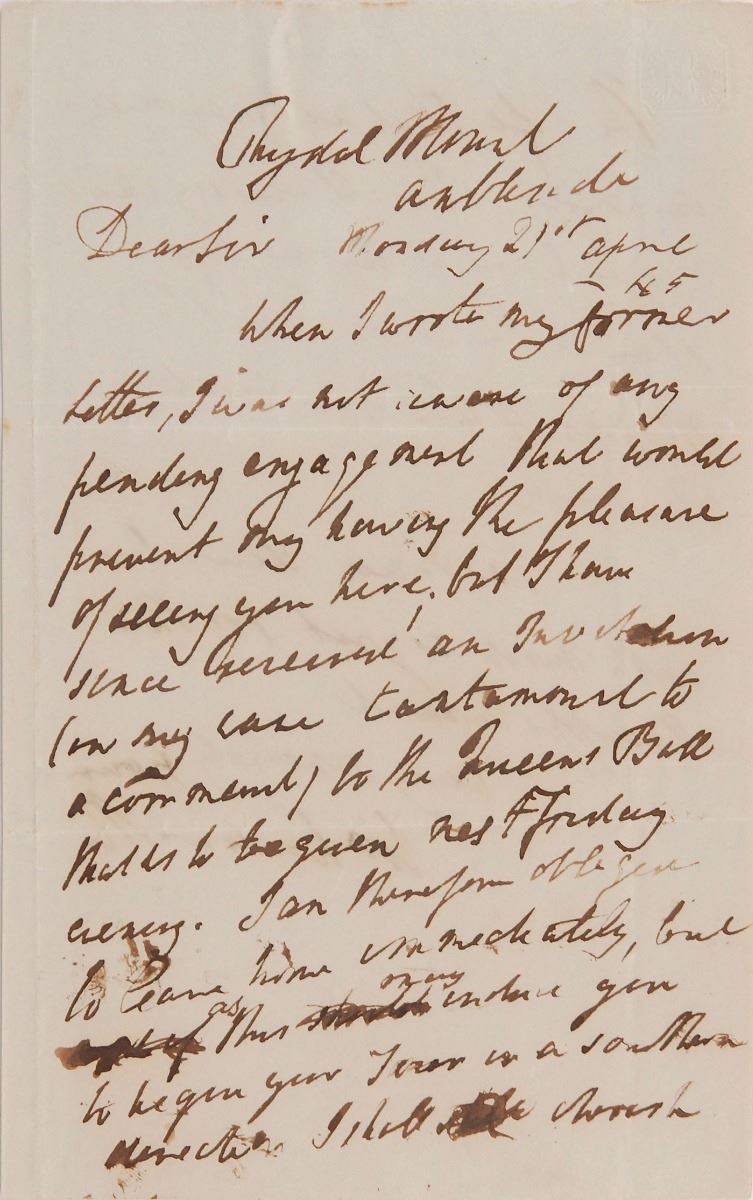 Rydal Mount
Ambleside
Dear Sir Monday 21st April
45
When I wrote my former
letter, I was not aware of any
pending engagement that would
prevent my having the pleasure
of seeing you here; but I have
since received an Invitation
(in my case tantamount to
a command) to the Queens Ball
that is to be given next Friday
evening. I am therefore obliged
to leave home immediately, but
may
as this should induce you
to begin your Tour in a southern
direction I shall still cherish